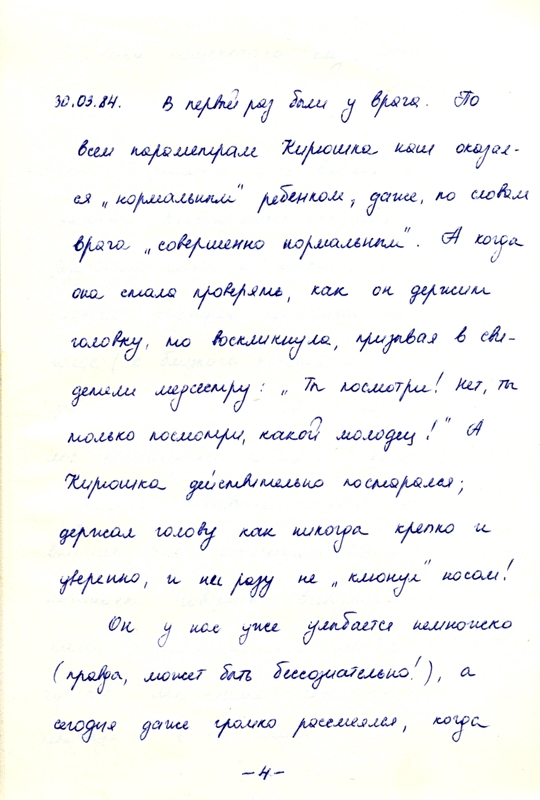 30.03.84. В первый раз были у врача. По
всем параметрам Кирюшка наш оказал-
ся „нормальным" ребенком, даже, по словам
врача „совершенно нормальным". А когда
она стала проверять, как он держит
головку, то воскликнула, призывая в сви-
детели медсестру: „Ты посмотри! Нет, ты
только посмотри, какой молодец!" А
Кирюшка действительно постарался;
держал голову как никогда крепко и
уверенно, и ни разу не „клюнул" носом!
Он у нас уже улыбается немножко
(правда, может быть бессознательно!), а
сегодня даже громко рассмеялся, когда
-4-